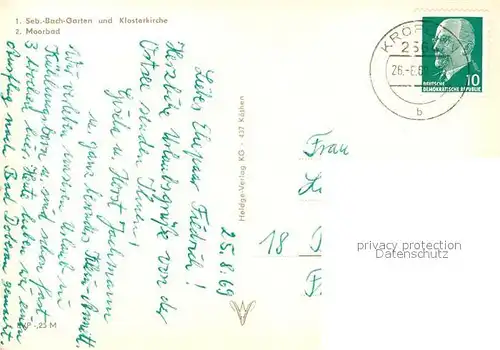 1. Seb.-Bach-Garten und Klosterkirche
2. Moorbad
25.8.69
Liebes Ehepaar Friedrich!
Herzliche Urlaubsgrüße von der
Ostsee senden Ihnen
Gisela u. Horst Jachmann
u. ganz besonders Klein-Annett.
Wir verleben unseren Urlaub in
Kühlungsborn u. sind schon fast
3 Wochen hier. Heute haben wir einen
Ausflug nach Bad Doberan gemacht.
EVP -,25 M
Heldge-Verlag KG · 437 Köthen
KRÖP
256
26.-8.69
b
10
DEUTSCHE
DEMOKRATISCHE REPUBLIK
Frau
18
privacy protection
Datenschutz